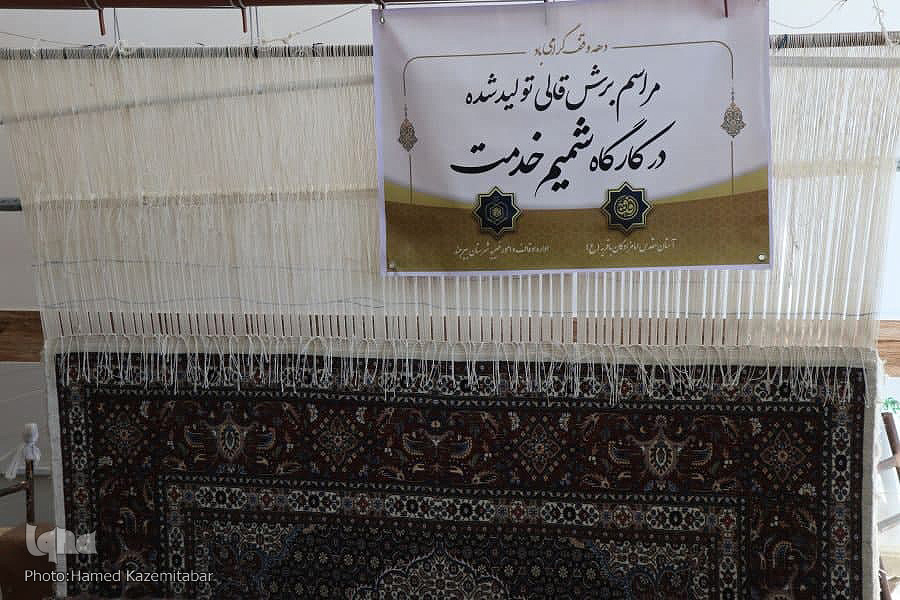 دهه وقف گرامی باد
مراسم برش قالی تولید شده
در کارگاه شمیم خدمت
آستان مقدس امامزادگان باقریه (ع)
اداره اوقاف و امور خیریه شهرستان بیرجند
iqna
Photo:Hamed Kazemitabar